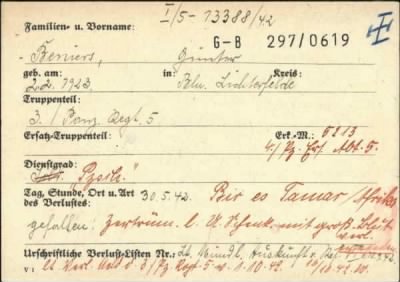 I/5-13388/42
Familien- u. Vorname:
G-B 297/0619
Beniers, Günter
geb. am: in: Kreis:
2.2.1923. Bln. Lichterfelde
Truppenteil:
3. / Panz. Regt. 5
Ersatz-Truppenteil: Erk-M.: 5213
4./Pz. Ers. Abt. 5.
Dienstgrad:
"Pzsch."
Tag, Stunde, Ort u. Art des Verlustes: 30.5.42. Bir es Tamar/Afrika
gefallen: Zertrüm. l. U. Schenk. mit groß. Blut
verl.
Urschriftliche Verlust-Listen Nr.: Lt. Mündl. Auskunft v.